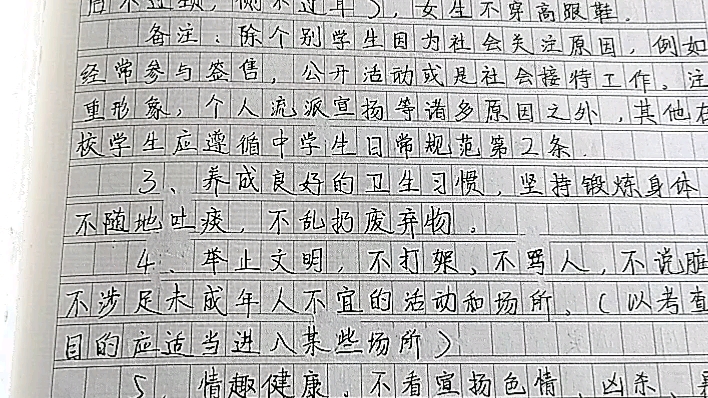 不过颈，侧不过耳），女生不穿高跟鞋.
备注：除个别学生因为社会关注原因，例如
经常参与签售，公开活动或是社会接待工作。注
重形象，个人流派宣扬等诸多原因之外，其他在
校学生应遵循中学生日常规范第2条.
3、养成良好的卫生习惯，坚持锻炼身体
不随地吐痰，不乱扔废弃物。
4、举止文明，不打架、不骂人，不说脏
不涉足未成年人不宜的活动和场所。（以考查
目的应适当进入某些场所）
5、情趣健康。不看宣扬色情、凶杀、